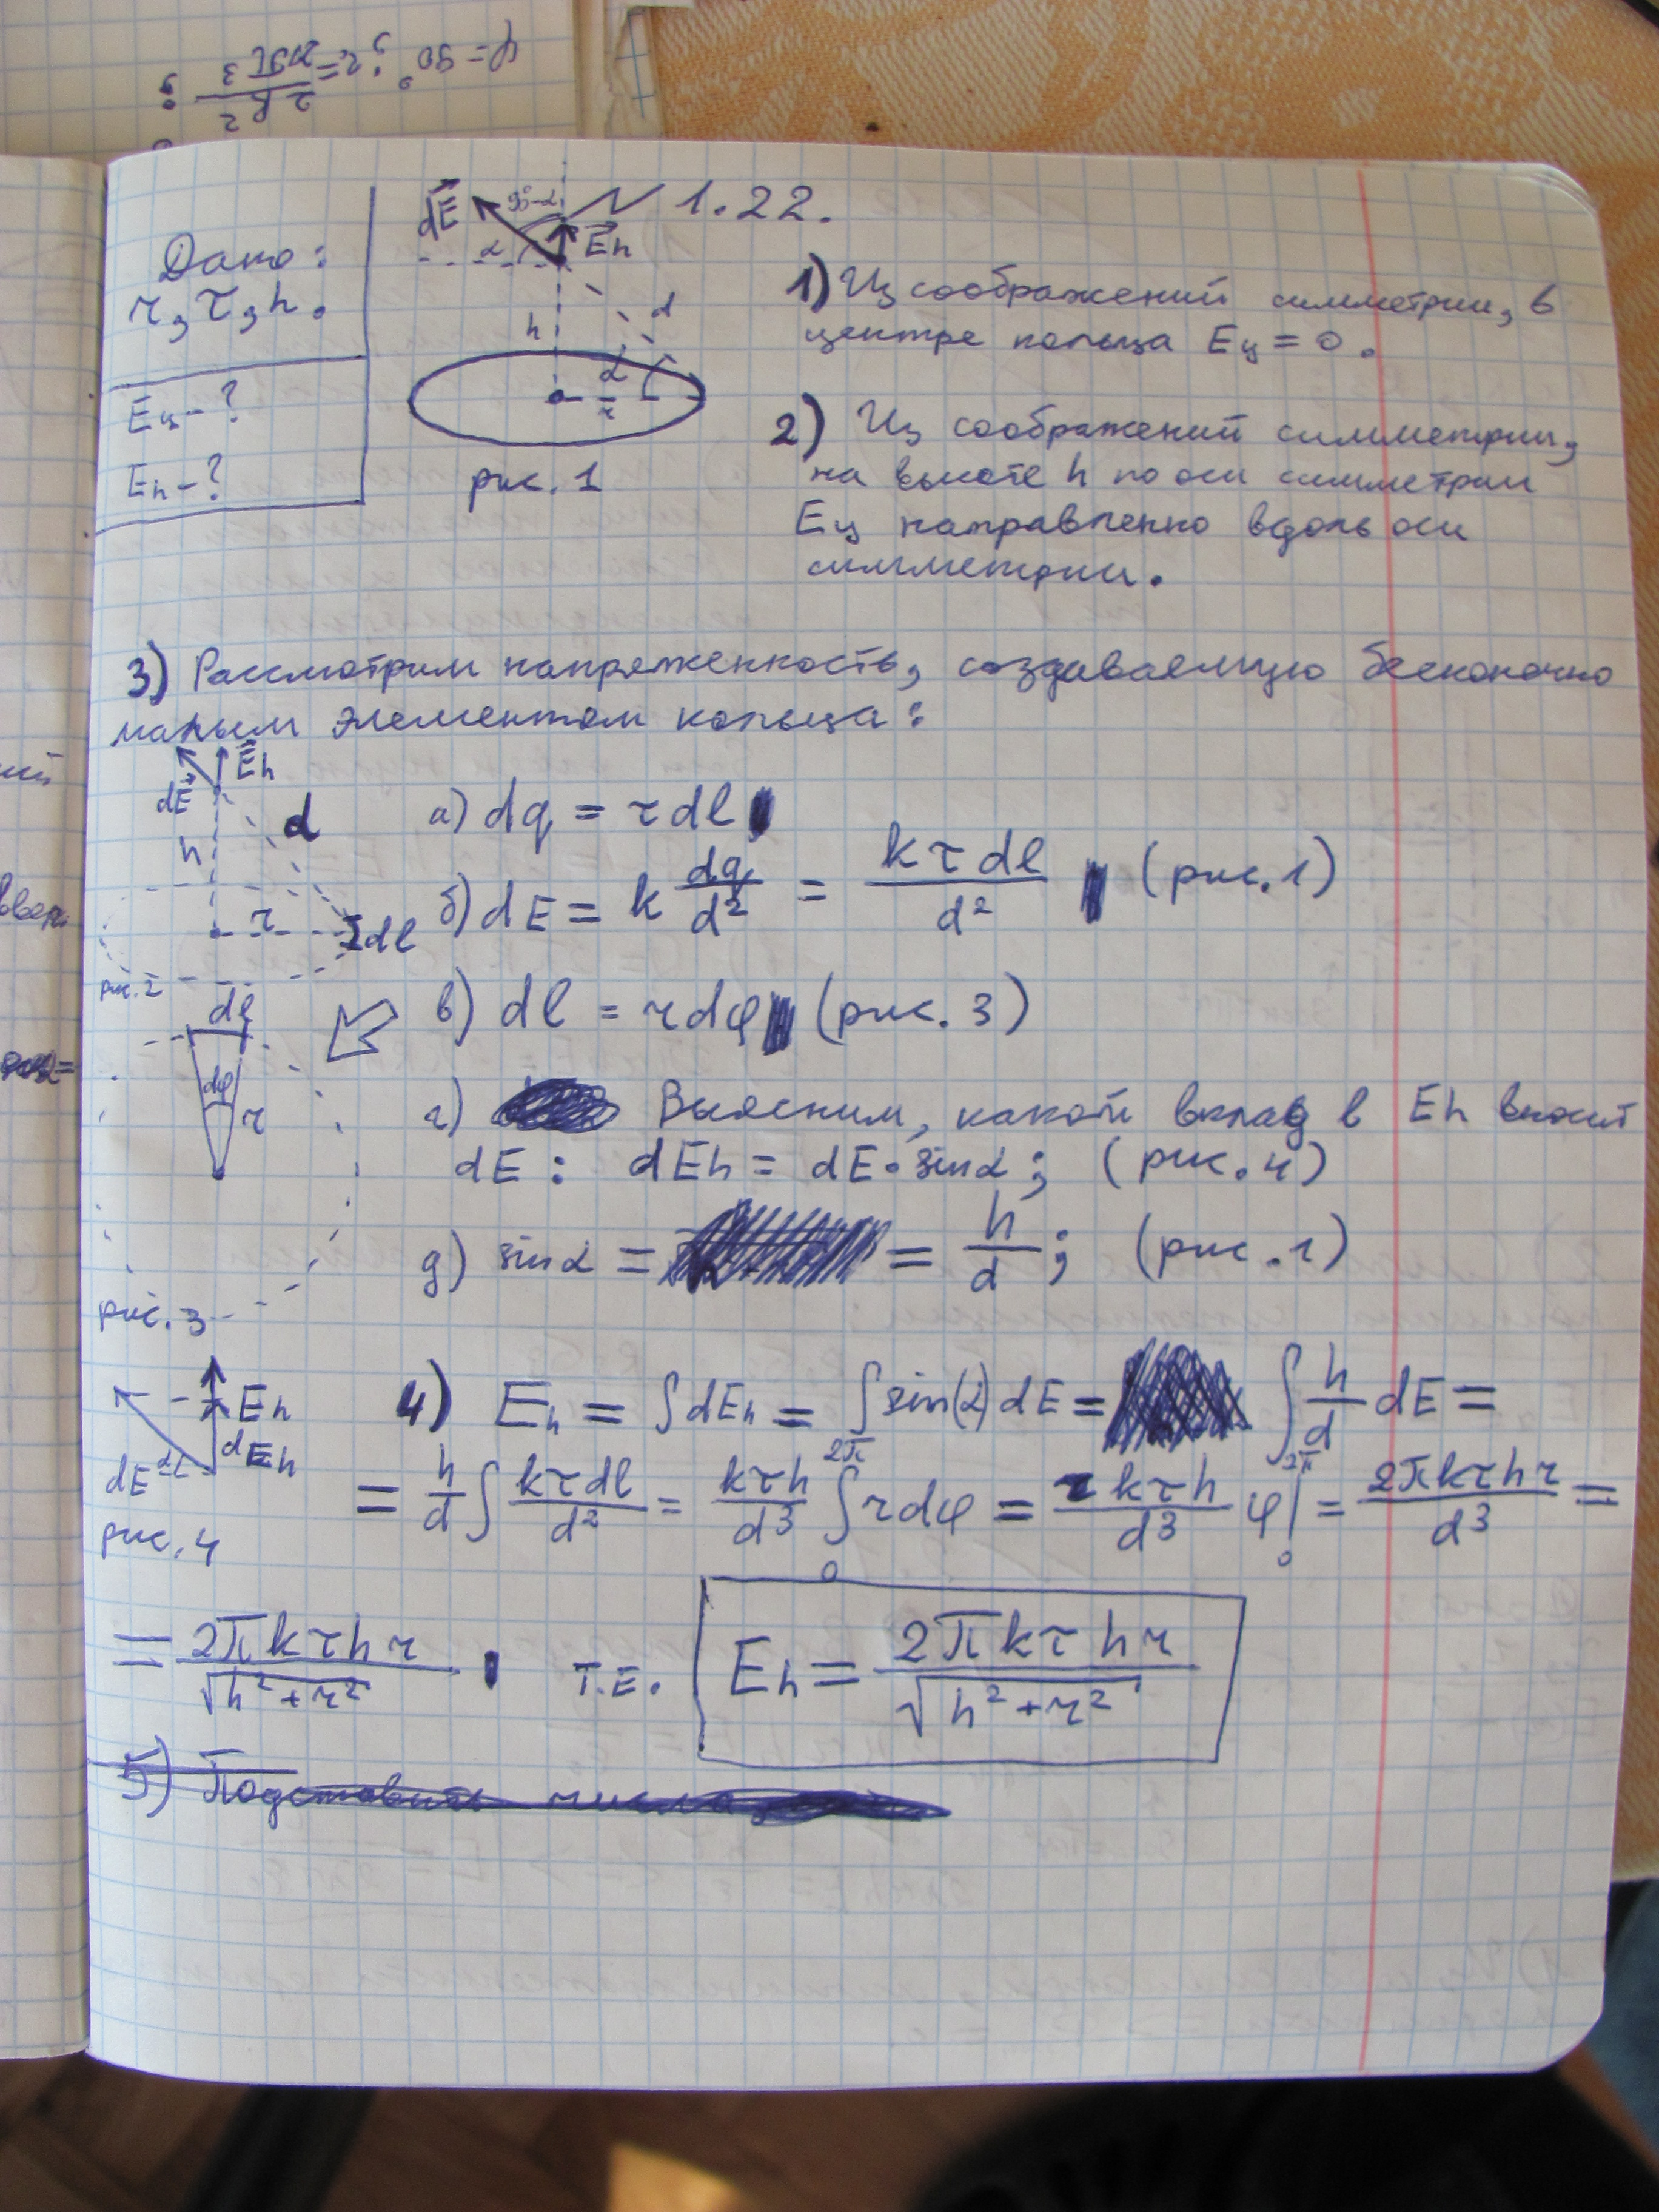 φ = 90°; r = 2τπ 3
№ 1.22.
Дано:
r, τ, h.
Eц - ?
Eh - ?
dE 90°-α
α Eh
h d
α
r
рис. 1
1) Из соображений симметрии, в
центре кольца Eц = 0.
2) Из соображений симметрии,
на высоте h по оси симметрии
Eц направленно вдоль оси
симметрии.
3) Рассмотрим напряженность, создаваемую бесконечно
малым элементом кольца:
dE Eh
h d
r dl
рис. 2
а) dq = τdl
б) dE = k dq/d² = kτdl/d² (рис. 1)
dl
dφ
r
рис. 3
в) dl = rdφ (рис. 3)
г) Выясним, какой вклад в Eh вносит
dE: dEh = dE·sinα; (рис. 4)
д) sinα = = h/d; (рис. 1)
Eh
dE α dEh
рис. 4
4) Eh = ∫dEh = ∫sin(α)dE = ∫ h/d dE =
= h/d ∫ kτdl/d² = kτh/d³ ∫₀^2π rdφ = r kτh/d³ φ|₀^2π = 2πkτhr/d³ =
= 2πkτhr/√(h²+r²) . т.е. Eh = 2πkτhr/√(h²+r²)
5) Подставить числа